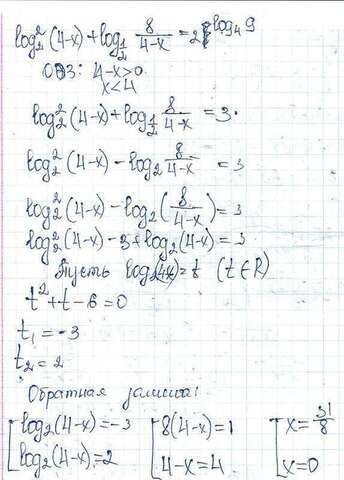 log₂²(4-x)+log_{1/2} 8/(4-x) = 2^{log₄ 9}
ОДЗ: 4-x>0
x<4
log₂²(4-x)+log_{1/2} 8/(4-x) = 3.
log₂²(4-x) - log₂ 8/(4-x) = 3
log₂²(4-x) - log₂(8/(4-x)) = 3
log₂²(4-x) - 3 + log₂(4-x) = 3
Пусть log₂(4-x) = t (t∈R)
t²+t-6=0
t₁=-3
t₂=2
Обратная замена:
[log₂(4-x)=-3 [8(4-x)=1 [x=31/8
log₂(4-x)=2 4-x=4 x=0